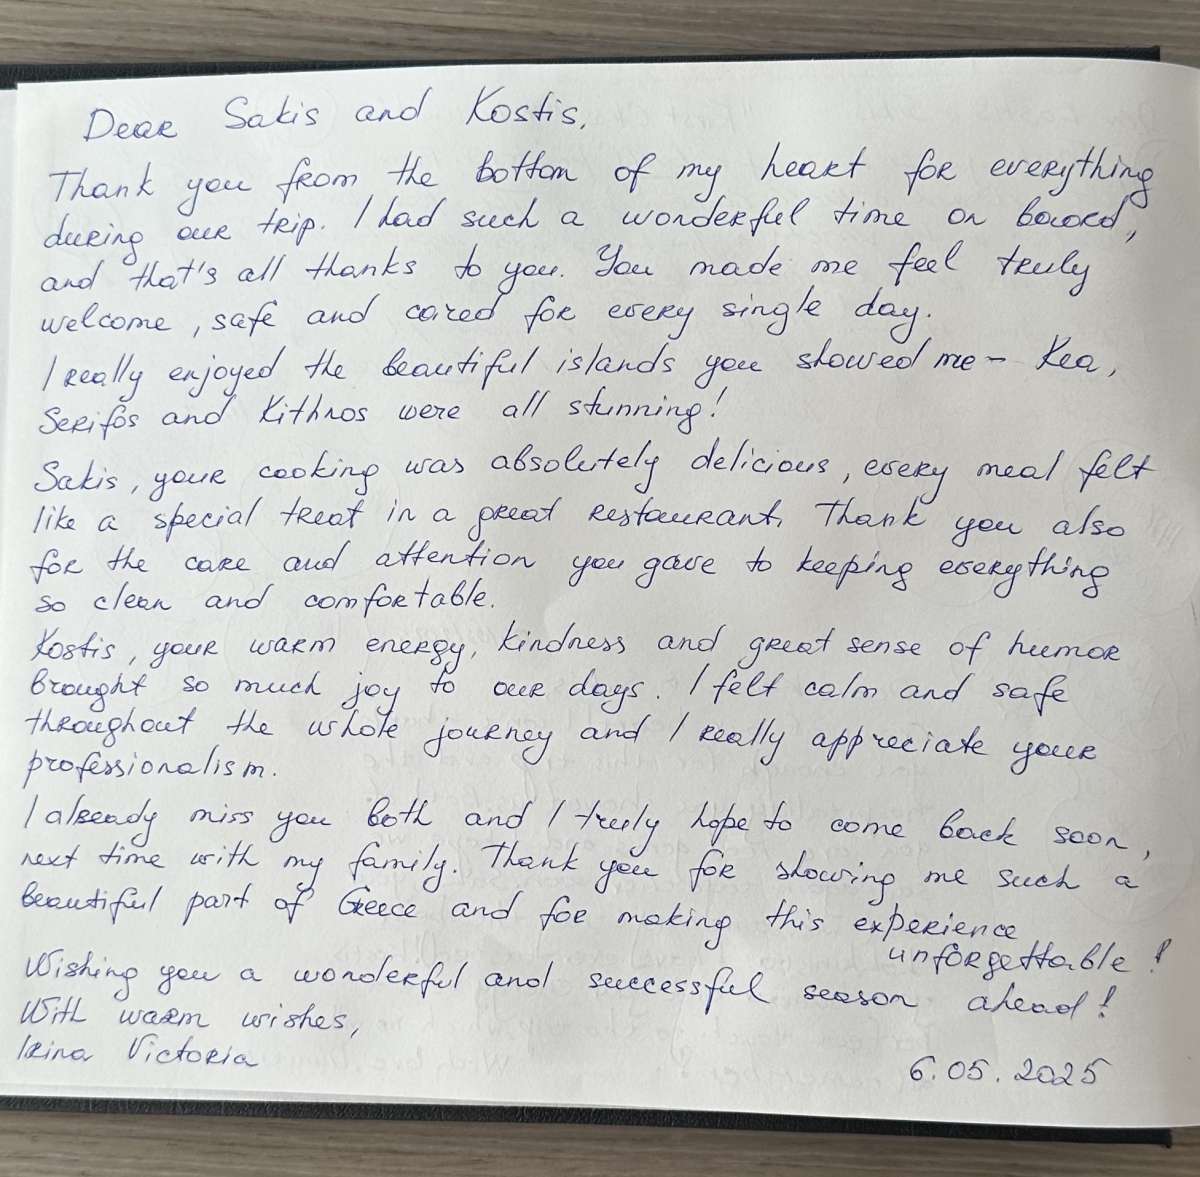 Dear Sakis and Kostis,
Thank you from the bottom of my heart for everything
during our trip. I had such a wonderful time on board,
and that's all thanks to you. You made me feel truly
welcome, safe and cared for every single day.
I really enjoyed the beautiful islands you showed me – Kea,
Serifos and Kithnos were all stunning!
Sakis, your cooking was absolutely delicious, every meal felt
like a special treat in a great restaurant. Thank you also
for the care and attention you gave to keeping everything
so clean and comfortable.
Kostis, your warm energy, kindness and great sense of humor
brought so much joy to our days. I felt calm and safe
throughout the whole journey and I really appreciate your
professionalism.
I already miss you both and I truly hope to come back soon,
next time with my family. Thank you for showing me such a
beautiful part of Greece and for making this experience
unforgettable!
Wishing you a wonderful and successful season ahead!
With warm wishes,
Irina Victoria
6.05.2025